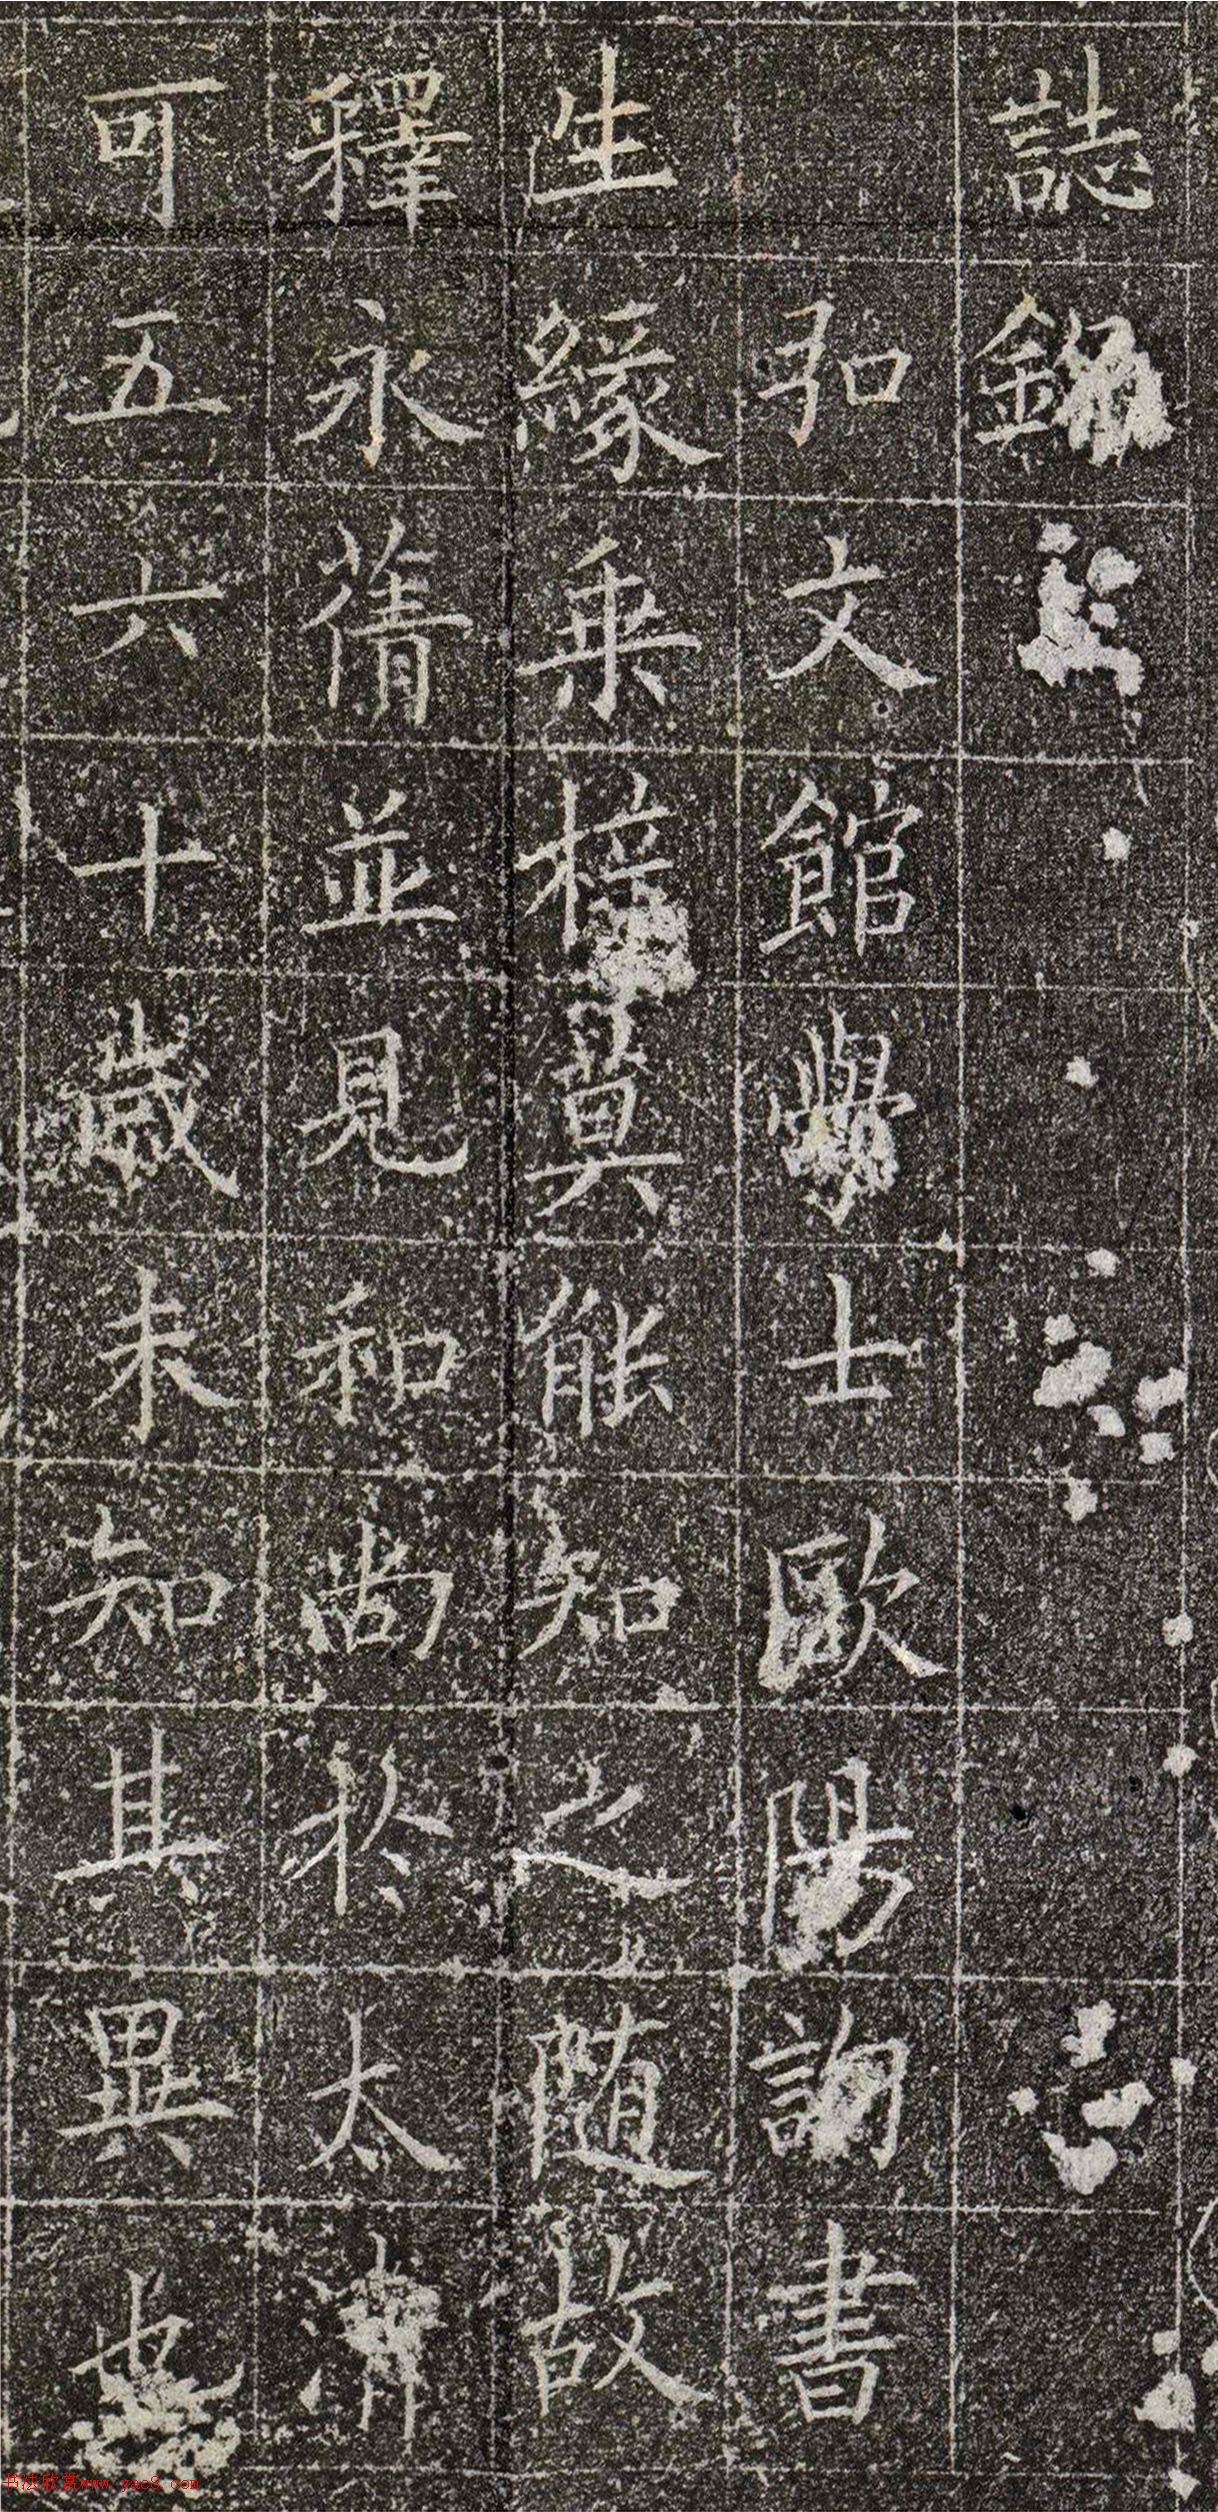 誌銘
弘文館學士歐陽詢書
生緣桑梓莫能知之隨故
釋永蒨並見和尚於太清
可五六十歲未知其異也
书法欣赏www.yac8.com